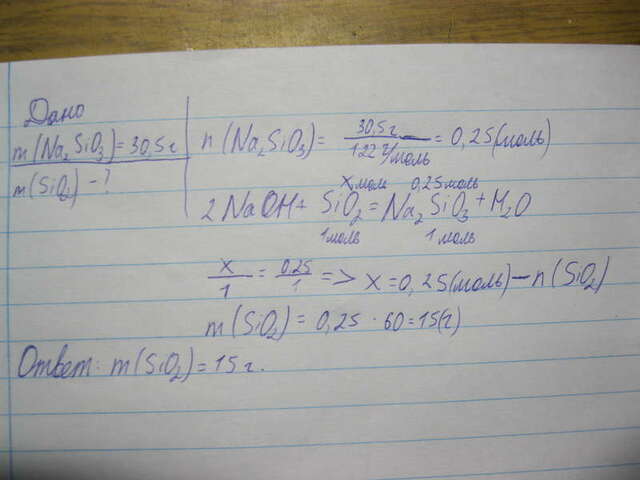 Дано
m(Na₂SiO₃)=30,5г
m(SiO₂) – ?
n(Na₂SiO₃)= 30,5г / 122 г/моль = 0,25(моль)
x моль 0,25моль
2NaOH+ SiO₂=Na₂SiO₃+H₂O
1моль 1моль
x/1 = 0,25/1 => x=0,25(моль)–n(SiO₂)
m(SiO₂)=0,25·60=15(г)
Ответ: m(SiO₂)=15г.